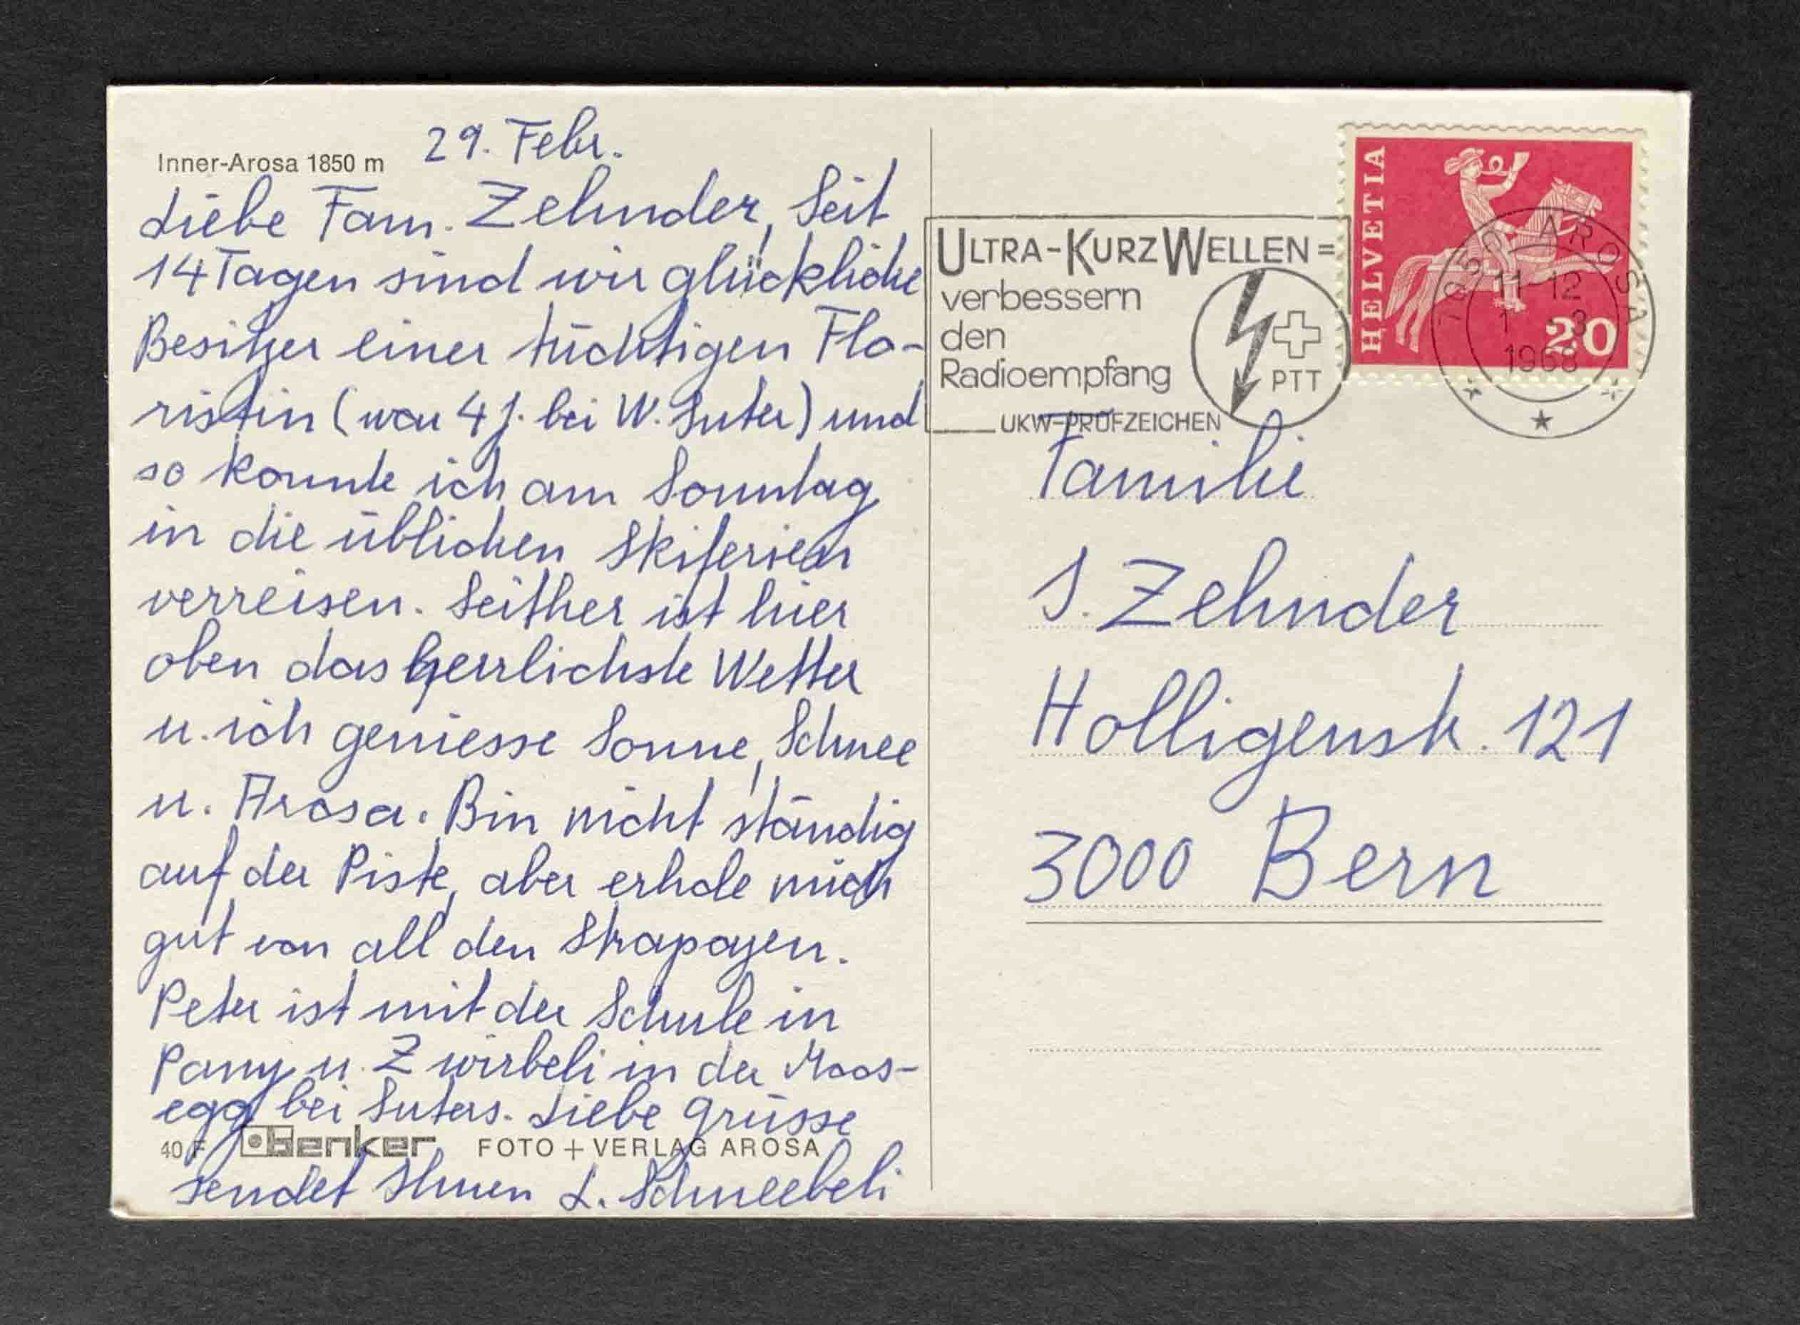 Inner-Arosa 1850 m
29. Febr.
Liebe Fam. Zehnder, Seit
14 Tagen sind wir glückliche
Besitzer einer tüchtigen Flo-
ristin (war 4 J. bei W. Suter) und
so konnte ich am Sonntag
in die üblichen Skiferien
verreisen. Seither ist hier
oben das herrlichste Wetter
u. ich geniesse Sonne, Schnee
u. Arosa. Bin nicht ständig
auf der Piste, aber erhole mich
gut von all den Strapazen.
Peter ist mit der Schule in
Pany u. Zwirbeli in der Moos-
egg bei Suters. Liebe Grüsse
sendet Ihnen L. Schneebeli
40 F benker FOTO + VERLAG AROSA
ULTRA-KURZWELLEN=
verbessern
den
Radioempfang
UKW-PRÜFZEICHEN
PTT
HELVETIA
20
7050 AROSA
11-12
1968
Familie
S. Zehnder
Holligenstr. 121
3000 Bern